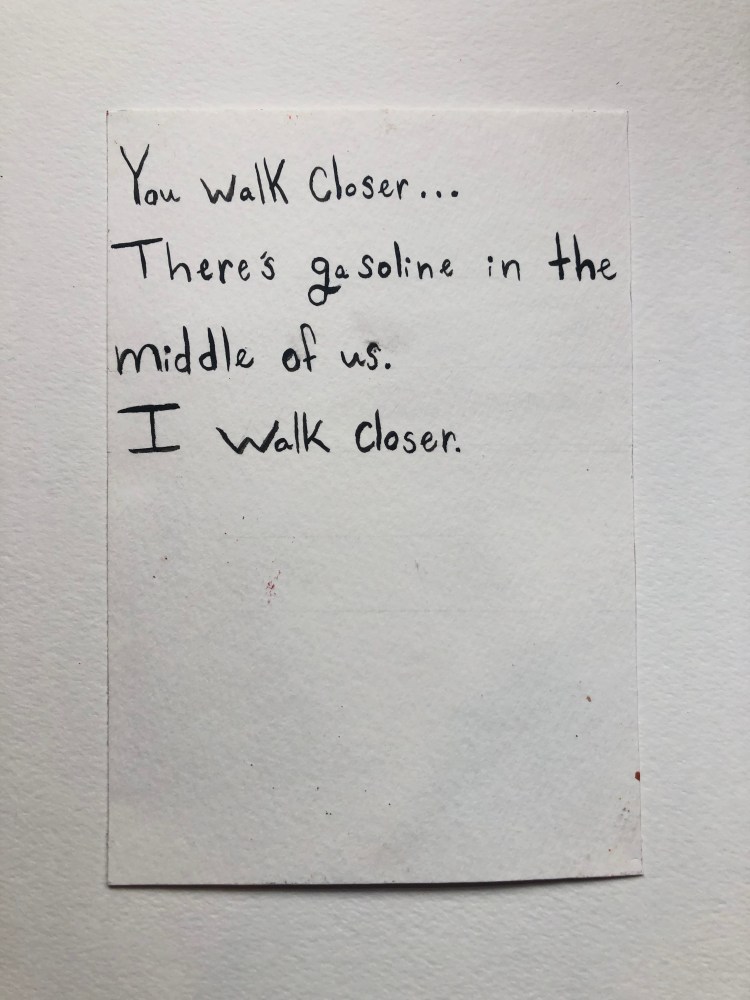 You walk closer...
There's gasoline in the
middle of us.
I walk closer.